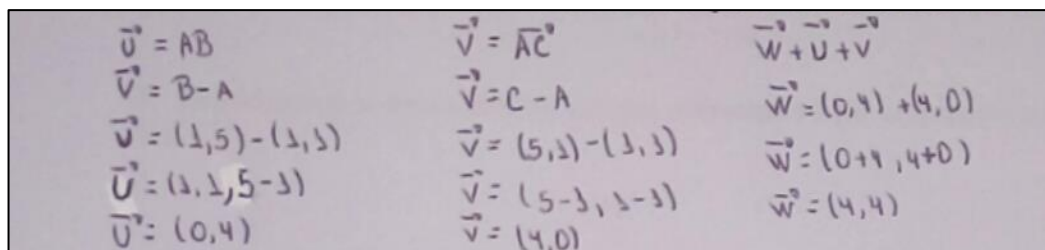 u⃗ = AB
v⃗ = B-A
u⃗ = (1,5)-(1,1)
u⃗ = (1,1,5-1)
u⃗ = (0,4)
v⃗ = AC⃗
v⃗ = C-A
v⃗ = (5,1)-(1,1)
v⃗ = (5-1, 1-1)
v⃗ = (4,0)
w⃗ + u⃗ + v⃗
w⃗ = (0,4) + (4,0)
w⃗ = (0+4, 4+0)
w⃗ = (4,4)